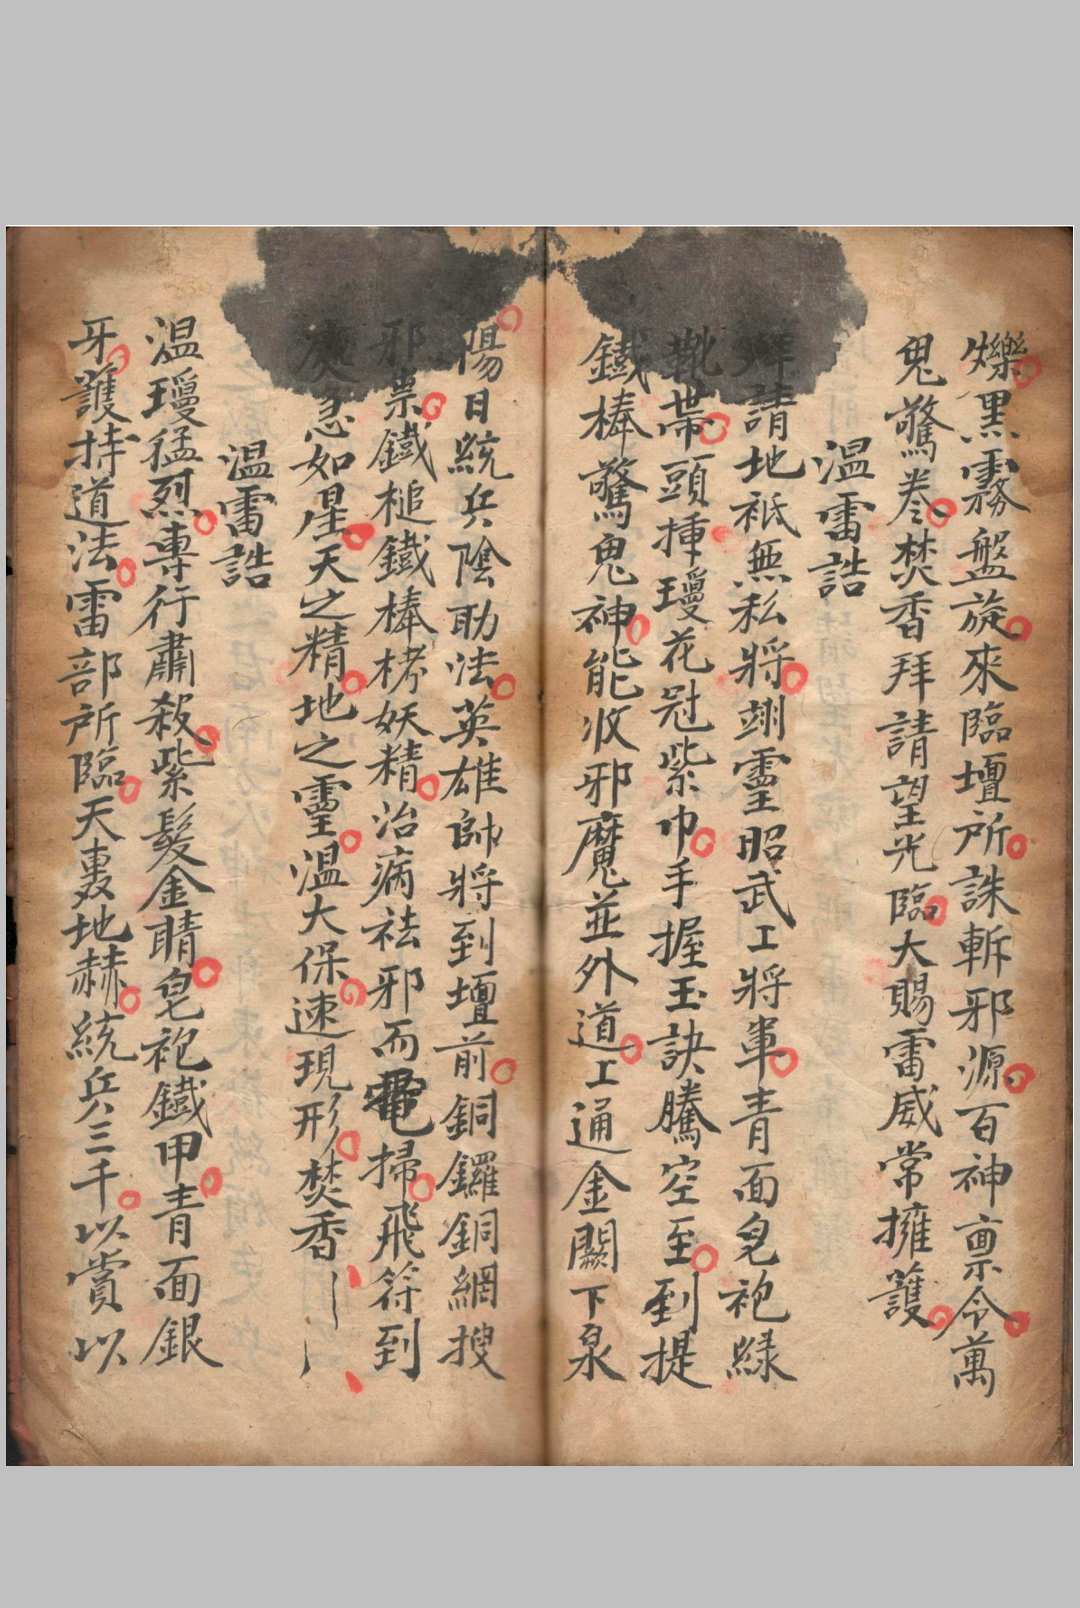 爍黑霧盤旋來臨壇所誅斬邪源百神禀令萬
鬼驚卷焚香拜請望光臨大賜雷威常擁護
温雷誥
拜請地祇無私將翊靈昭武工將軍青面皂袍綠
靴帶頭揷瓊花冠紫巾手握玉訣騰空至到提
鐵棒驚鬼神能收邪魔並外道工通金闕下泉
陽日統兵陰助法英雄帥將到壇前銅鑼銅網搜
邪祟鐵槌鐵棒栲妖精治病祛邪而電掃飛符到
急如星天之精地之靈温大保速現形焚香
温雷誥
温瓊猛烈專行肅殺紫髮金睛皂袍鐵甲青面銀
牙護持道法雷部所臨天轟地赫統兵三千以賞以